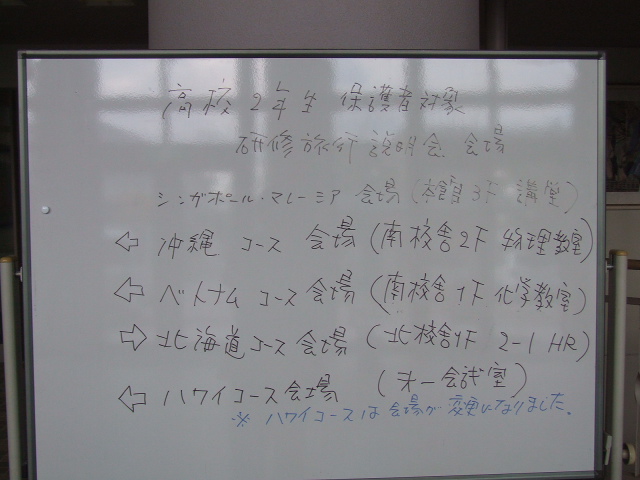 高校2年生 保護者対象
研修旅行説明会 会場
シンガポール・マレーシア 会場(本館3F 講堂)
⇦ 沖縄 コース 会場(南校舎2F 物理教室)
⇦ ベトナム コース 会場(南校舎1F 化学教室)
⇨ 北海道コース 会場(北校舎1F 2-1 HR)
⇦ ハワイコース会場 (オ一会議室)
※ ハワイコースは会場が変更になりました。